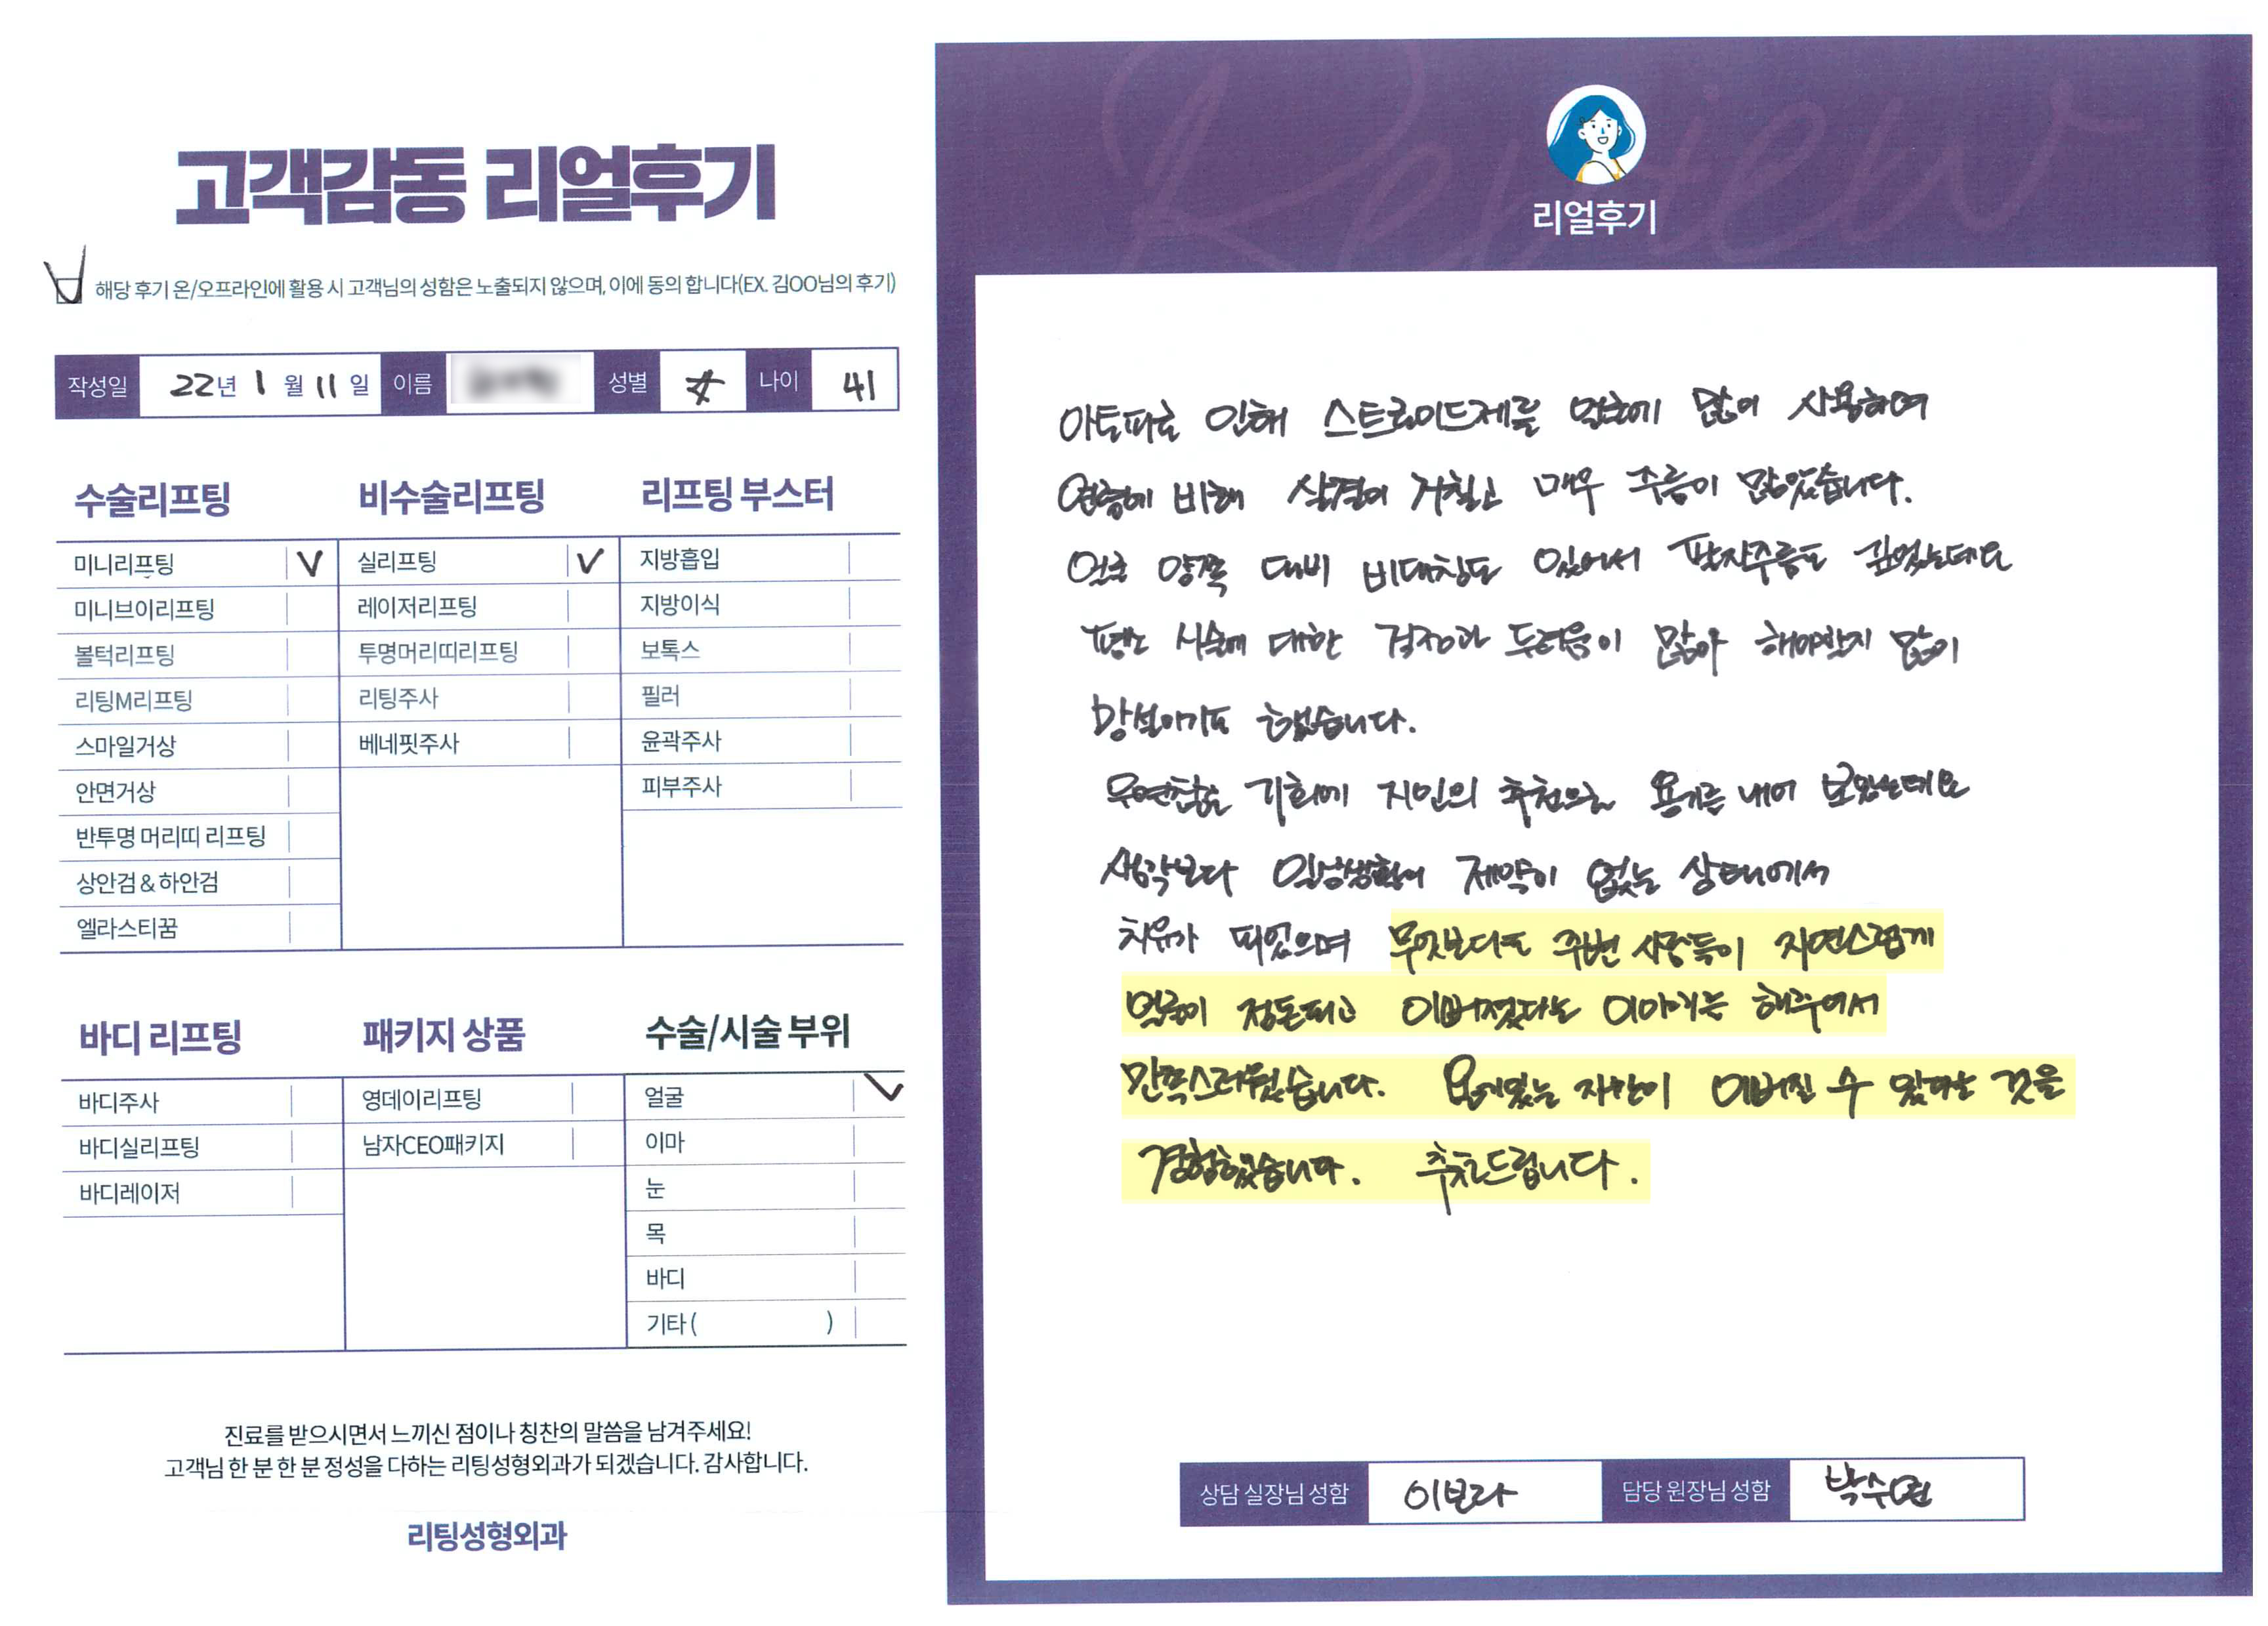 고객감동 리얼후기
해당 후기 온/오프라인에 활용 시 고객님의 성함은 노출되지 않으며, 이에 동의 합니다(EX. 김OO님의 후기)
작성일 22년 1월 11일 이름 성별 나이 41
수술리프팅
미니리프팅 V
미니브이리프팅
볼턱리프팅
리팅M리프팅
스마일거상
안면거상
반투명 머리띠 리프팅
상안검 & 하안검
엘라스티꿈
비수술리프팅
실리프팅 V
레이저리프팅
투명머리띠리프팅
리팅주사
베네핏주사
리프팅 부스터
지방흡입
지방이식
보톡스
필러
윤곽주사
피부주사
바디 리프팅
바디주사
바디실리프팅
바디레이저
패키지 상품
영데이리프팅
남자CEO패키지
수술/시술 부위
얼굴 V
이마
눈
목
바디
기타 ( )
진료를 받으시면서 느끼신 점이나 칭찬의 말씀을 남겨주세요!
고객님 한 분 한 분 정성을 다하는 리팅성형외과가 되겠습니다. 감사합니다.
리팅성형외과
Review
리얼후기
아토피로 인해 스트로이드제를 얼굴에 많이 사용하여
연령에 비해 살결이 거칠고 매우 주름이 많았습니다.
얼굴 양쪽 대비 비대칭도 있어서 팔자주름도 깊었는데요
평소 시술에 대한 걱정과 두려움이 많아 해야할지 많이
망설이기도 했습니다.
우연찮은 기회에 지인의 추천으로 용기를 내어 보았는데요
생각보다 일상생활에 제약이 없는 상태에서
치유가 되었으며 무엇보다도 주변 사람들이 자연스럽게
얼굴이 정돈되고 이뻐졌다는 이야기를 해주어서
만족스러웠습니다. 자신이 이뻐질 수 있다는 것을
경험했습니다. 추천드립니다.
상담 실장님 성함 이보라 담당 원장님 성함 박수연